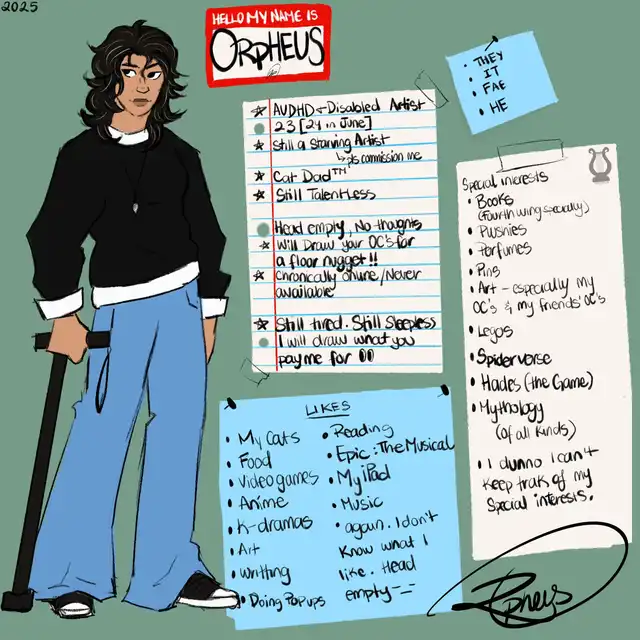 2025
HELLO MY NAME IS
ORPHEUS
THEY
IT
FAE
HE
AUDHD + Disabled Artist
23 [24 in June]
Still a Starving Artist
pls commission me
Cat Dad™
Still Talentless
Head empty, No thoughts
Will Draw your OC's for
a floor nugget!!
Chronically online/Never
available
Still tired. Still Sleepless
I will draw what you
pay me for
Special interests
• Books
(Fourth wing specially)
• Plushies
• Perfumes
• Pins
• Art - especially my
OC's & my friends' OC's
• Legos
• Spiderverse
• Hades (the Game)
• Mythology
(of all kinds)
• I dunno I can't
keep trak of my
Special interests.
LIKES
• My Cats
• Food
• Videogames
• Anime
• K-dramas
• Art
• Writting
• Doing Popups
• Reading
• Epic: The Musical
• My iPad
• Music
• again. I don't
know what I
like. Head
empty -_-
Orpheus